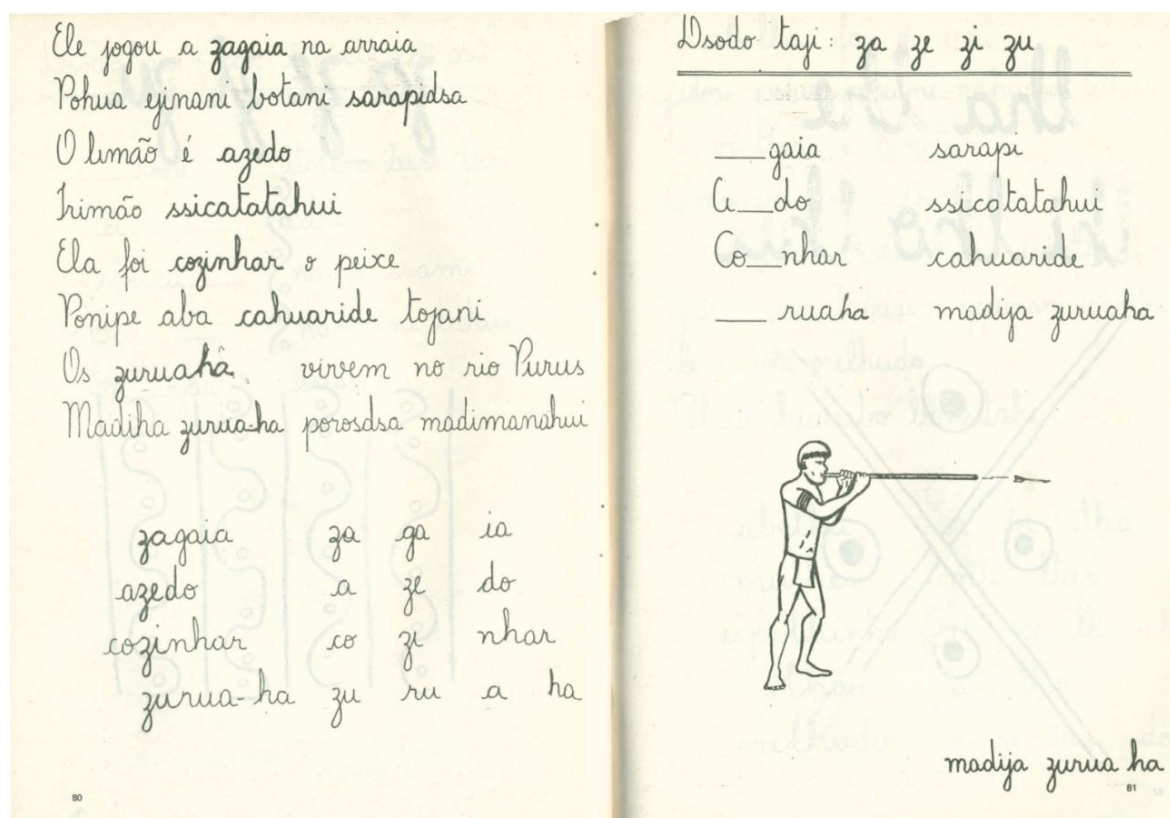 Ele jogou a zagaia na arraia
Pohua ejinani botani sarapidsa
O limão é azedo
Irimão ssicatatahui
Ela foi cozinhar o peixe
Ponipe aba cahuaride tojani
Os zuruahã vivem no rio Purus
Madiha zurua-ha porosdsa madimanahui
zagaia za ga ia
azedo a ze do
cozinhar co zi nhar
zurua-ha zu ru a ha
80
Dsodo taji: za ze zi zu
___gaia sarapi
A___do ssicatatahui
Co___nhar cahuaride
___ruaha madija zuruaha
madija zurua ha
81